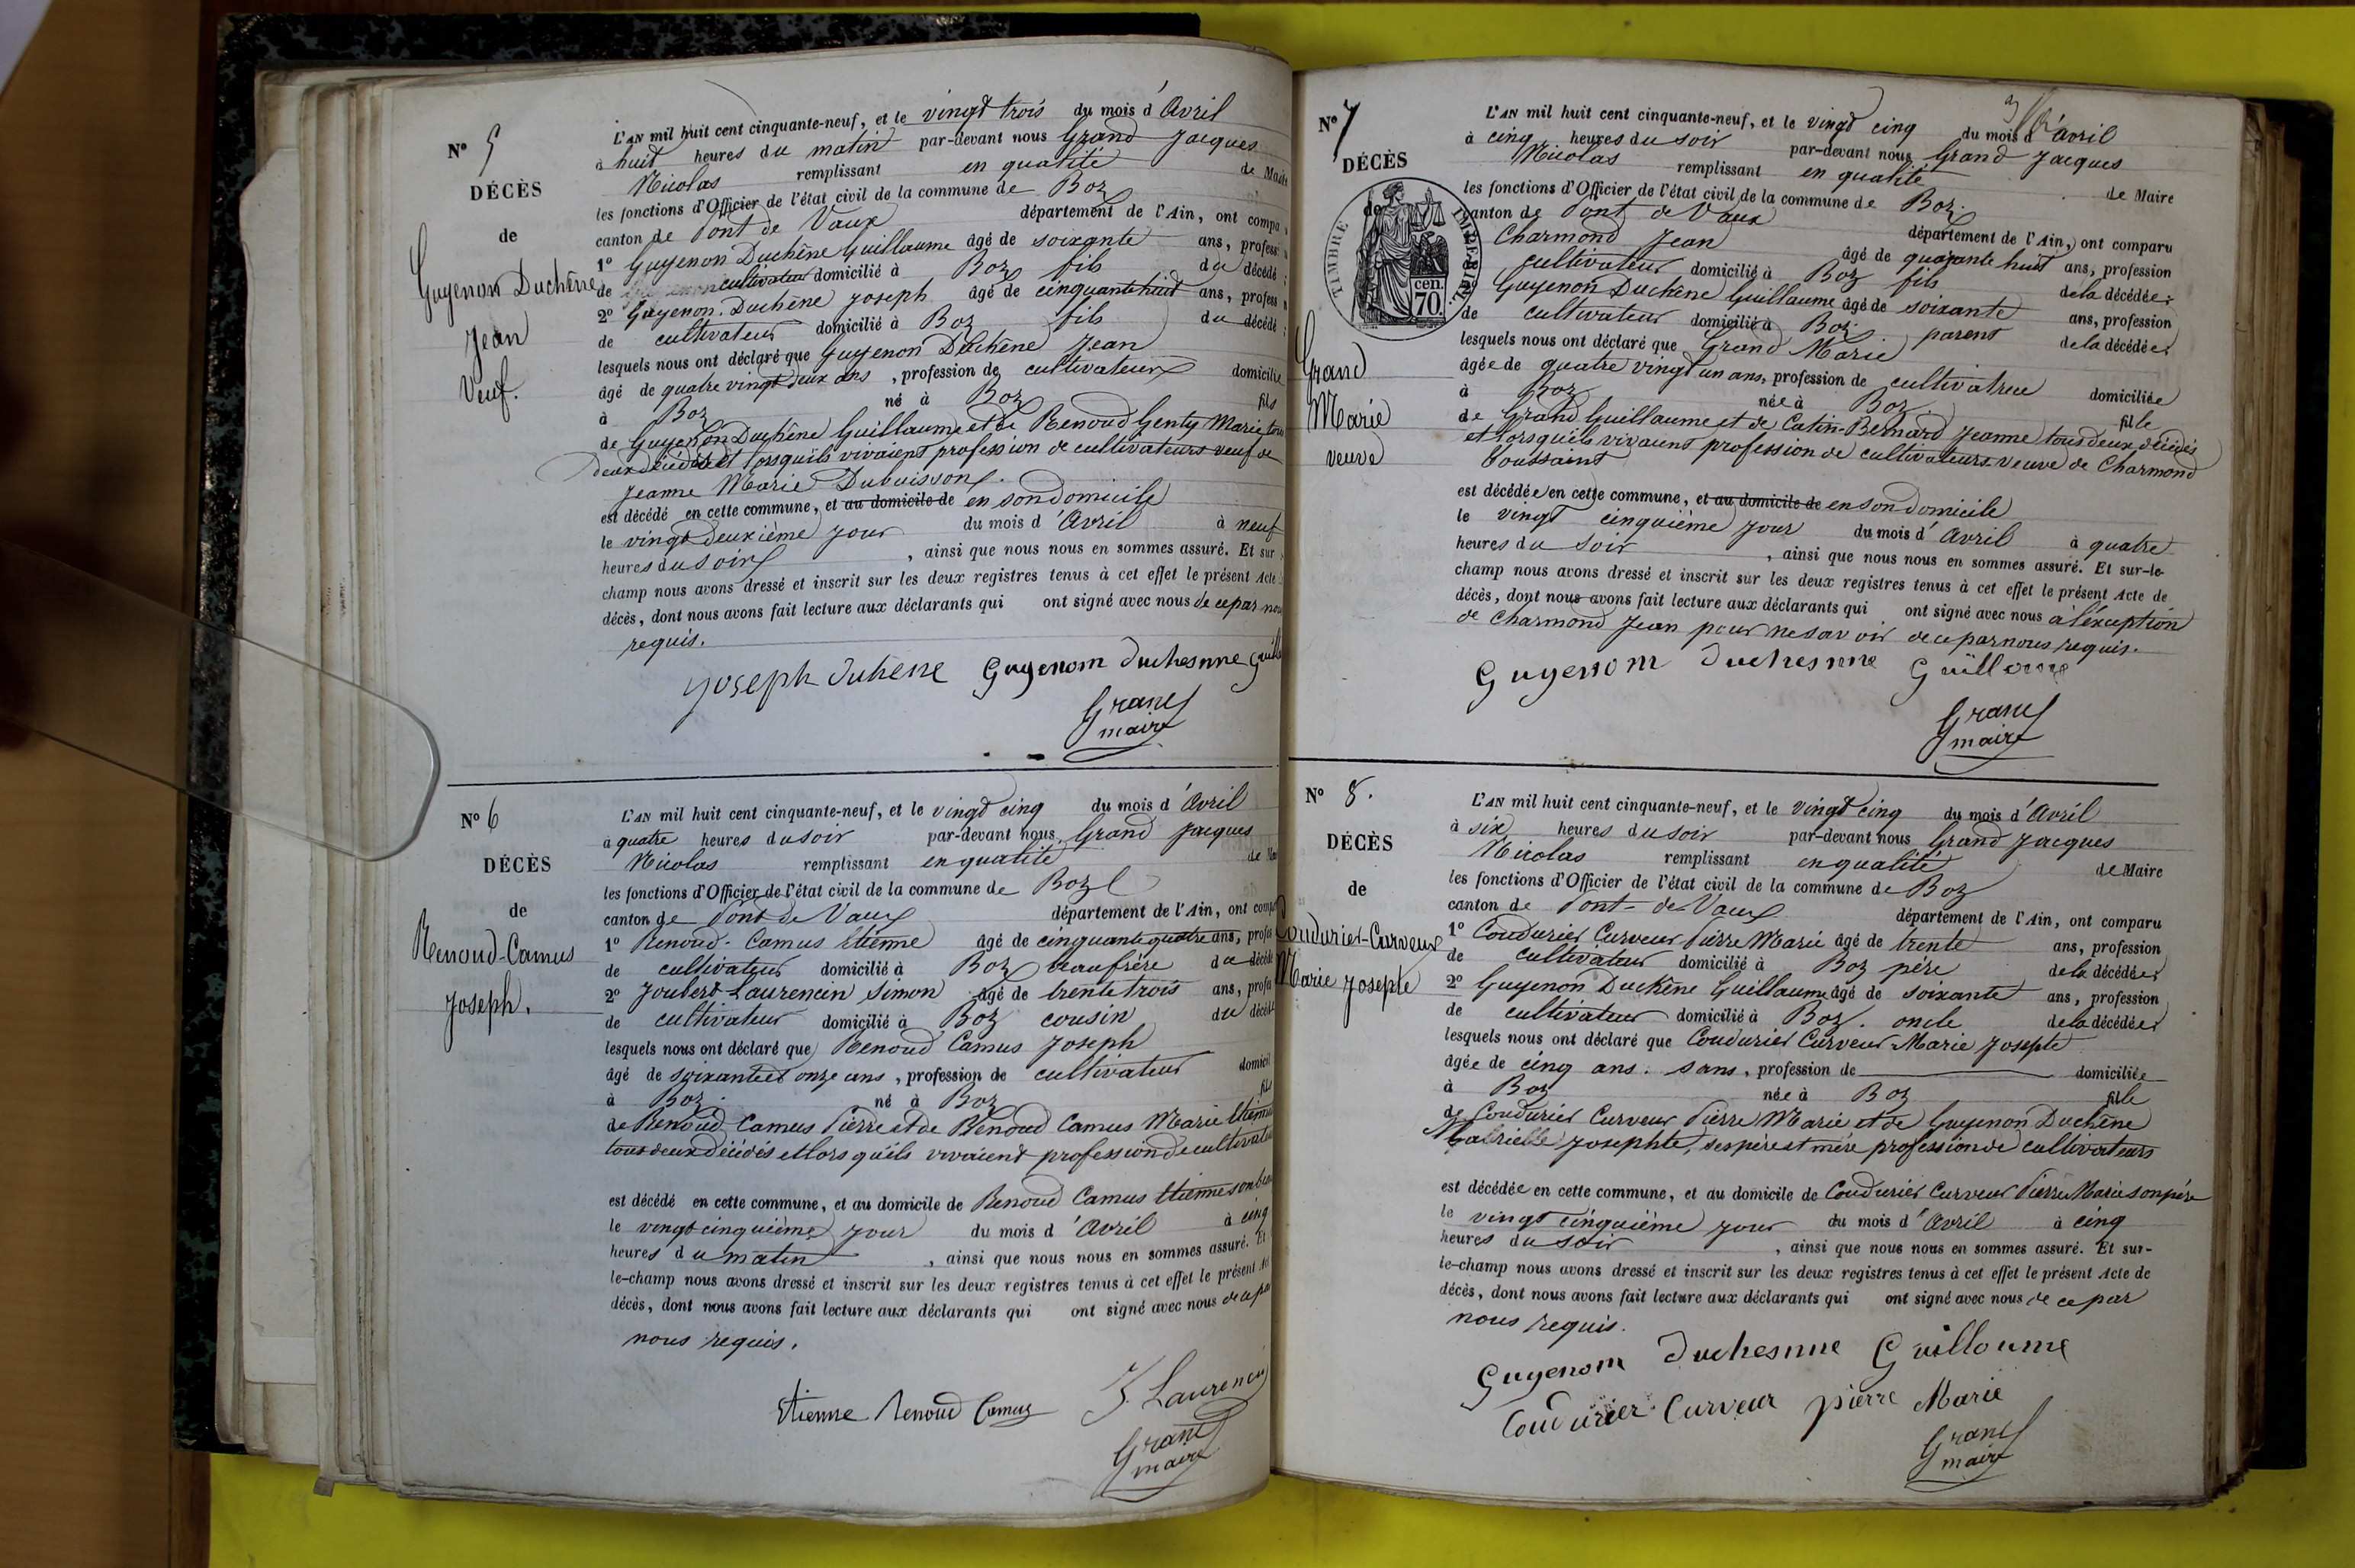 N° 5
DÉCÈS
de
Guyenon Duchêne
Jean
Veuf.
L'AN mil huit cent cinquante-neuf, et le vingt trois du mois d'Avril
à huit heures du matin par-devant nous Grand Jacques
Nicolas remplissant en qualité de Maire
les fonctions d'Officier de l'état civil de la commune de Boz
canton de Pont de Vaux département de l'Ain, ont compa
1° Guyenon Duchêne Guillaume âgé de soixante ans, profess
de cultivateur domicilié à Boz fils du décédé
2° Guyenon Duchêne Joseph âgé de cinquante huit ans, profess
de cultivateur domicilié à Boz fils du décédé
lesquels nous ont déclaré que Guyenon Duchêne Jean
âgé de quatre vingt deux ans, profession de cultivateur domicilié
à Boz né à Boz fils
de Guyenon Duchêne Guillaume et de Renoud Genty Marie tous
deux décédés et lorsquils vivaient profession de cultivateurs veuf de
Jeanne Marie Dubuisson.
est décédé en cette commune, et au domicile de en son domicile
le vingt deuxième jour du mois d'Avril à neuf
heures du soir, ainsi que nous nous en sommes assuré. Et sur
champ nous avons dressé et inscrit sur les deux registres tenus à cet effet le présent Acte
décès, dont nous avons fait lecture aux déclarants qui ont signé avec nous de ce par nous
requis.
Joseph duhene Guyenom duchesnne Guill
Grand
maire
N° 6
DÉCÈS
de
Renoud-Camus
Joseph.
L'AN mil huit cent cinquante-neuf, et le vingt cinq du mois d'Avril
à quatre heures du soir par-devant nous Grand Jacques
Nicolas remplissant en qualité de Mai
les fonctions d'Officier de l'état civil de la commune de Boz
canton de Pont de Vaux département de l'Ain, ont comp
1° Renoud-Camus Etienne âgé de cinquante quatre ans, profes
de cultivateur domicilié à Boz beaufrére du décédé
2° Joubert-Laurencin Simon âgé de trente trois ans, profes
de cultivateur domicilié à Boz cousin du décédé
lesquels nous ont déclaré que Renoud Camus Joseph
âgé de soixante et onze ans, profession de cultivateur domicil
à Boz. né à Boz fils
de Renoud Camus Pierre et de Renoud Camus Marie Etienne
tous deux décédés et lors qu'ils vivaient profession de cultivate
est décédé en cette commune, et au domicile de Renoud Camus Etienne son beau
le vingt cinquième jour du mois d'Avril à cinq
heures du matin, ainsi que nous nous en sommes assuré. Et
le-champ nous avons dressé et inscrit sur les deux registres tenus à cet effet le présent Act
décès, dont nous avons fait lecture aux déclarants qui ont signé avec nous de ce par
nous requis.
Etienne Renoud Camus J. Laurencin
Grand
maire
N° 7
DÉCÈS
de
TIMBRE IMPÉRIAL
70. cen.
Grand
Marie
veuve
L'AN mil huit cent cinquante-neuf, et le vingt cinq du mois d'Avril
à cinq heures du soir par-devant nous Grand Jacques
Nicolas remplissant en qualité de Maire
les fonctions d'Officier de l'état civil de la commune de Boz.
canton de Pont de Vaux département de l'Ain, ont comparu
Charmond Jean âgé de quarante huit ans, profession
cultivateur domicilié à Boz fils de la décédée;
Guyenon Duchêne Guillaume âgé de soixante ans, profession
de cultivateur domicilié à Boz. parent de la décédée;
lesquels nous ont déclaré que Grand Marie
âgée de quatre vingt un ans, profession de cultivatrice domiciliée
à Boz née à Boz fille
de Grand Guillaume et de Catin-Bernard Jeanne tous deux décédés
et lorsqu'ils vivaient profession de cultivateurs veuve de Charmond
Toussaint
est décédée en cette commune, et au domicile de en son domicile
le vingt cinquième jour du mois d'Avril à quatre
heures du soir, ainsi que nous nous en sommes assuré. Et sur-le-
champ nous avons dressé et inscrit sur les deux registres tenus à cet effet le présent Acte de
décès, dont nous avons fait lecture aux déclarants qui ont signé avec nous à l'éxception
de Charmond Jean pour ne savoir de ce par nous requis.
Guyenom duchesnne Guillome
Grand
maire
N° 8.
DÉCÈS
de
Coudurier-Curveux
Marie Josephe
L'AN mil huit cent cinquante-neuf, et le vingt cinq du mois d'Avril
à six heures du soir par-devant nous Grand Jacques
Nicolas remplissant en qualité de Maire
les fonctions d'Officier de l'état civil de la commune de Boz
canton de Pont-de-Vaux département de l'Ain, ont comparu
1° Coudurier Curveur Pierre Marie âgé de trente ans, profession
de cultivateur domicilié à Boz pére de la décédée;
2° Guyenon Duchêne Guillaume âgé de soixante ans, profession
de cultivateur domicilié à Boz. oncle de la décédée;
lesquels nous ont déclaré que Coudurier Curveur Marie Josephe
âgée de cinq ans. sans, profession de domiciliée
à Boz née à Boz fille
de Coudurier Curveur Pierre Marie et de Guyenon Duchêne
Gabrielle Josephte, ses père et mère profession de cultivateurs
est décédée en cette commune, et au domicile de Coudurier Curveur Pierre Marie son père
le vingt cinquième jour du mois d'Avril à cinq
heures du soir, ainsi que nous nous en sommes assuré. Et sur-
le-champ nous avons dressé et inscrit sur les deux registres tenus à cet effet le présent Acte de
décès, dont nous avons fait lecture aux déclarants qui ont signé avec nous de ce par
nous requis.
Guyenom duchesnne Guilloume
Coudurier Curveur pierre Marie
Grand
maire